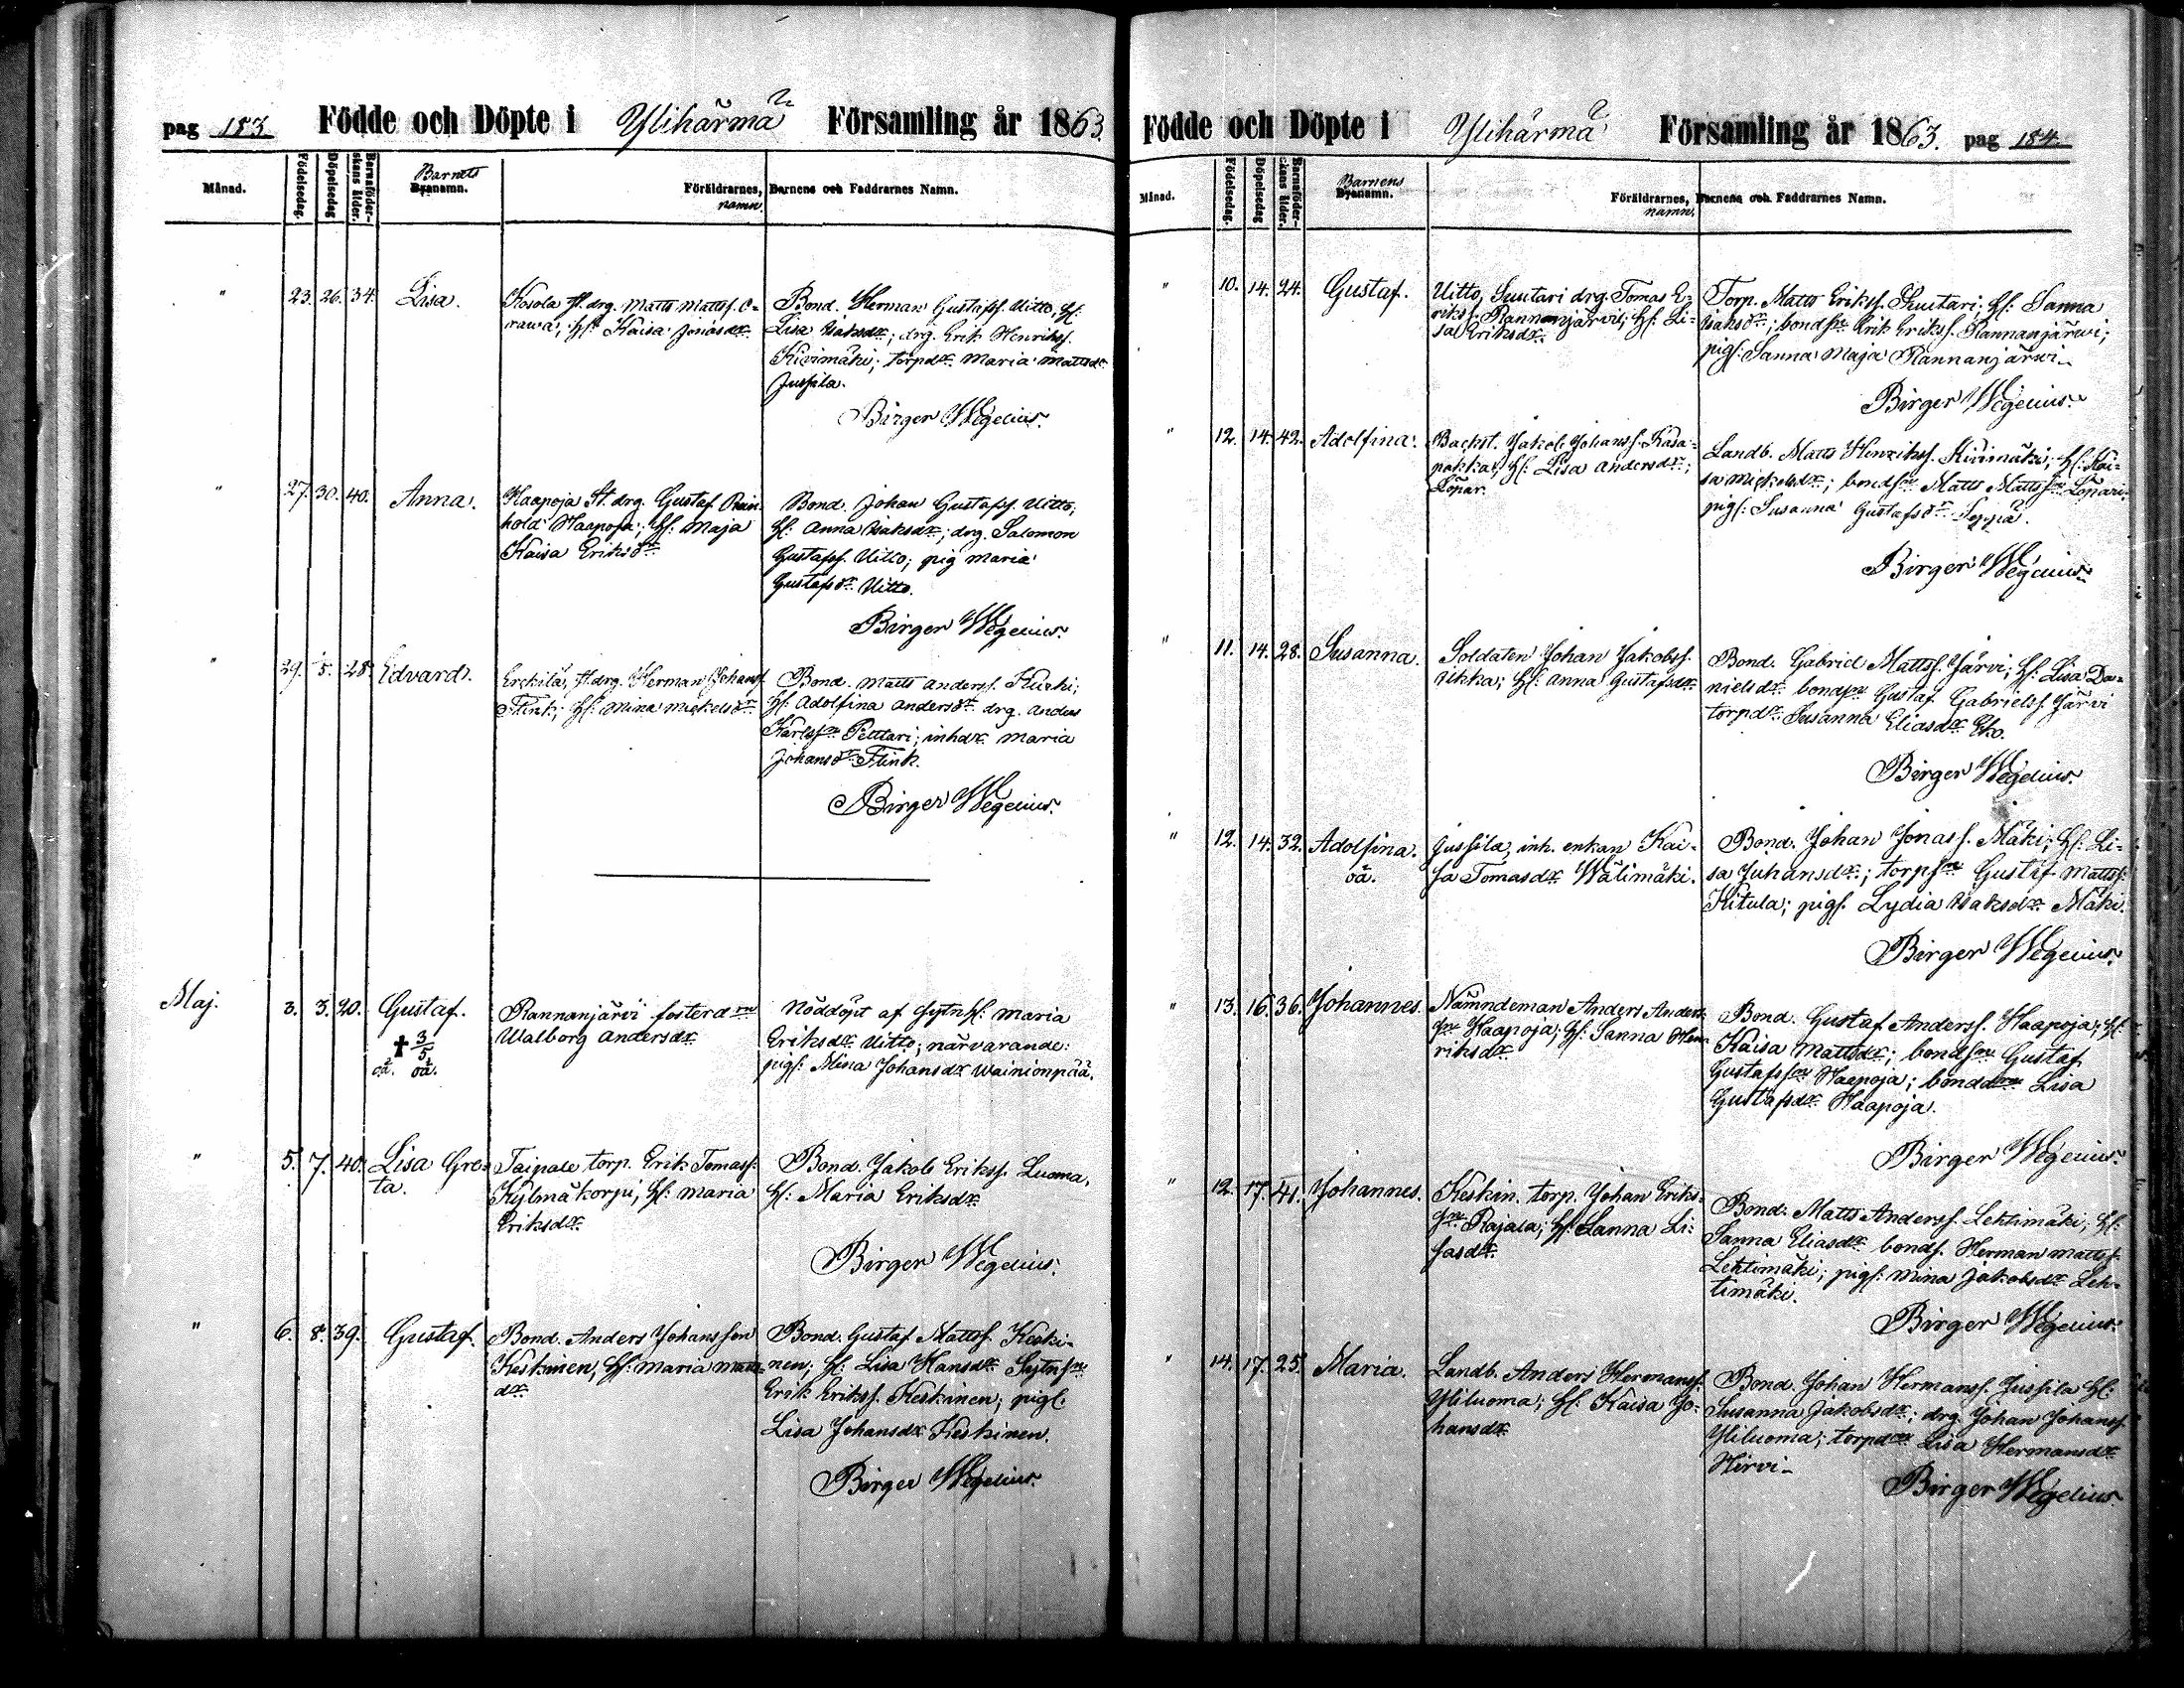 pag 183 Födde och Döpte i Ylihärmä Församling år 1863.
Månad. Födelsedag. Döpelsedag Barnaföder-skans ålder. Barnets Byanamn. Föräldrarnes, namn. Barnens och Faddrarnes Namn.
" 23. 26. 34. Lisa.
Kosola st. drg. Matts Mattss. O-
rawa; H: Kaisa Jonasdr.
Bond. Herman Gustafss. Uitto, H:
Lisa Isaksdr; drg. Erik Henrikss.
Kivimäki; torpdr. Maria Mattsdr
Jussila.
Birger Wegelius.
" 27. 30. 40. Anna.
Haapoja St. drg. Gustaf Rein-
hold Haapoja; H: Maja
Kaisa Eriksdr
Bond. Johan Gustafss. Uitto,
H: Anna Isaksdr; drg. Salomon
Gustafss. Uitto; pig Maria
Gustafsdr Uitto.
Birger Wegelius.
" 29. 5. 28. Edvard.
Erckilä, st. drg. Herman Johanss
Flink; H: Mina Mickelsdr
Bond. Matts Anderss.
H: Adolfina Andersdr drg. Anders
Karlssn Pelttari; inhdr. Maria
Johansdr Flink.
Birger Wegelius.
Maj. 3. 3. 20. Gustaf.
† 3/5
oä. oä.
Rannanjärvi fosterdrn
Walborg Andersdr
Nöddöpt af Sytnh: Maria
Eriksdr Uitto; närvarande:
pigs: Mina Johansdr Wainionpää.
" 5. 7. 40. Lisa Gre-
ta.
Taipale torp. Erik Tomass.
Kylmäkorpi, H: Maria
Eriksdr.
Bond. Jakob Erikss. Luoma,
H: Maria Eriksdr.
Birger Wegelius.
" 6. 8. 39. Gustaf.
Bond. Anders Johansson
Keskinen, H: Maria Matts-
dr
Bond. Gustaf Mattss. Keski-
nen; H: Lisa Hansdr Sytnsn
Erik Erikss. Keskinen; pigs.
Lisa Johansdr Keskinen.
Birger Wegelius.
Födde och Döpte i Ylihärmä Församling år 1863. pag 184.
Månad. Födelsedag. Döpelsedag Barnaföder-skans ålder. Barnens Byanamn. Föräldrarnes, namn. Barnens och Faddrarnes Namn.
" 10. 14. 24. Gustaf.
Uitto, Suutari drg. Tomas E-
rikss. Rannanjärvi; H: Li-
sa Eriksdr.
Torp. Matts Erikss. Suutari; H: Sanna
Isaksdr; bondsn Erik Erikss. Rannanjärwi;
pigs: Sanna Maja Rannanjärwi.
Birger Wegelius.
" 12. 14. 42. Adolfina.
Backst. Jakob Johanss. Kasa-
pakka, H: Lisa Andersdr;
Löpar.
Landb. Matts Henrikss. Kivimäki; H: Kai-
sa Mickelsdr; bondsn Matts Mattssn Löpari;
pigs: Susanna Gustafsdr Seppä.
Birger Wegelius.
" 11. 14. 28. Susanna.
Soldaten Johan Jakobss.
Ukka; H: Anna Gustafsdr
Bond. Gabriel Mattss. Järvi; H: Lisa Da-
nielsdr bondsn Gustaf Gabrielss. Järvi
torpdr. Susanna Eliasdr Eko.
Birger Wegelius.
" 12. 14. 32. Adolfina.
oä.
Jussila, inh. enkan Kai-
sa Tomasdr Wälimäki.
Bond. Johan Jonass. Mäki; H: Li-
sa Juhansdr; torpsn Gustaf Mattss.
Kitula; pigs. Lydia Isaksdr Mäki.
Birger Wegelius.
" 13. 16. 36. Johannes.
Nämndeman Anders Anders-
sn Haapoja; H: Sanna Hen-
riksdr
Bond. Gustaf Anderss. Haapoja; H:
Kaisa Mattsdr; bondsn Gustaf
Gustafssn Haapoja; bonddrn Lisa
Gustafsdr Haapoja.
Birger Wegelius.
" 12. 17. 41. Johannes.
Keskin. torp. Johan Eriks-
sn Rajala; H: Sanna Li-
sasdr
Bond. Matts Anderss. Lehtimäki; H:
Sanna Eliasdr bonds. Herman Mattss.
Lehtimäki; pigs: Mina Jakobsdr Leh-
timäki.
Birger Wegelius.
" 14. 17. 25. Maria.
Landb. Anders Hermanss.
Yliluoma; H: Kaisa Jo-
hansdr
Bond. Johan Hermanss. Jussila H:
Susanna Jakobsdr; drg. Johan Johanss.
Yliluoma; torpdrn Lisa Hermansdr
Hirvi-
Birger Wegelius